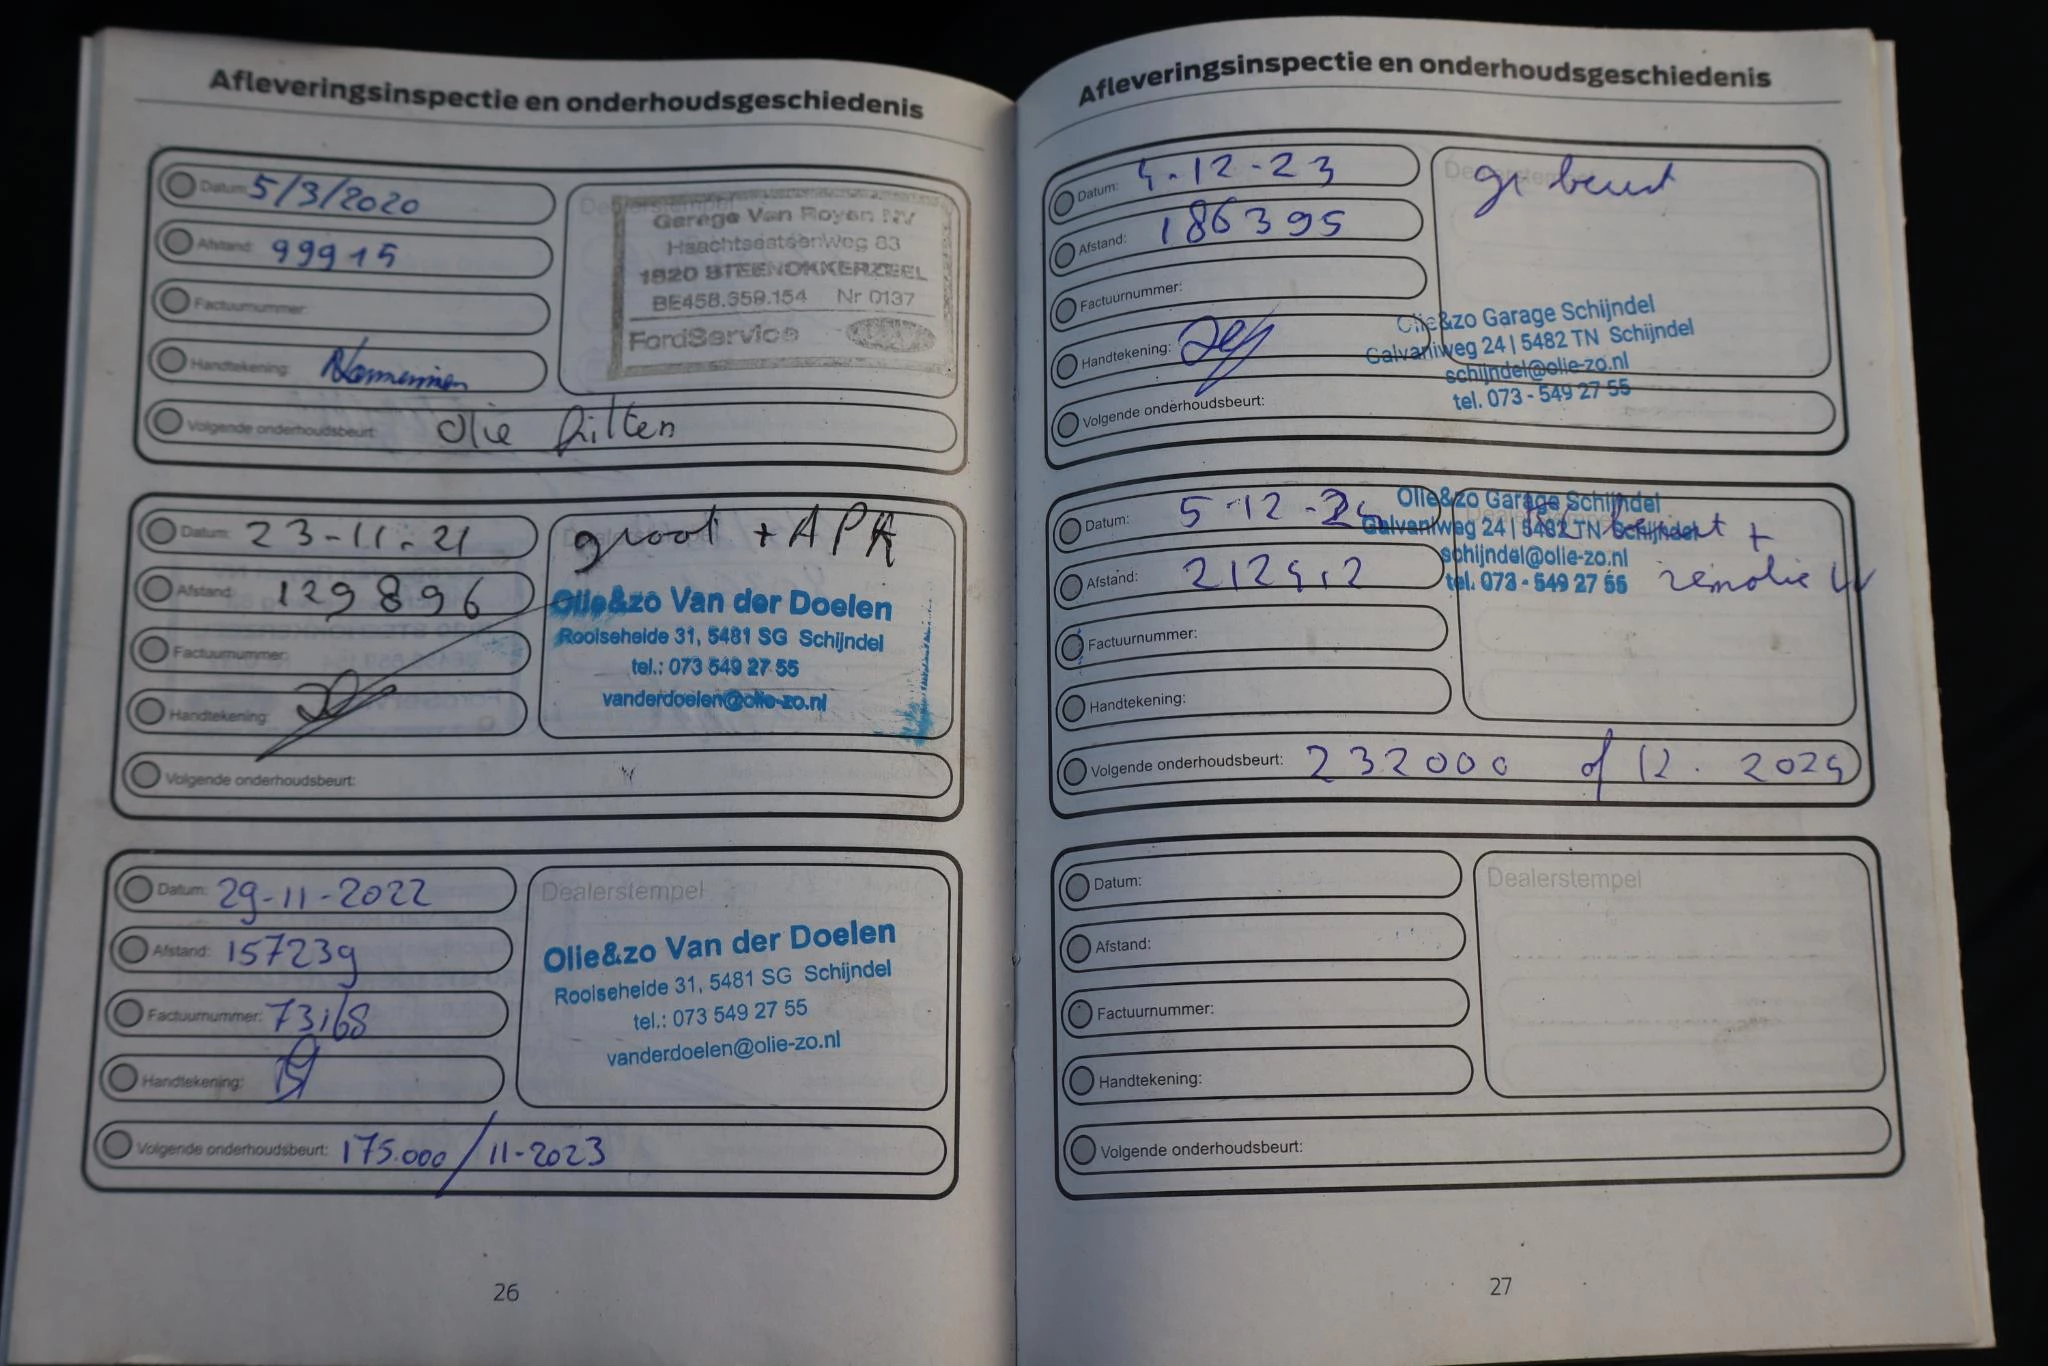 Afleveringsinspectie en onderhoudsgeschiedenis
Datum: 5/3/2020
Afstand: 99915
Factuurnummer:
Handtekening:
Volgende onderhoudsbeurt: olie filter
Dealerstempel
Garage Van Royen NV
Haachtsesteenweg 83
1820 STEENOKKERZEEL
BE458.359.154 Nr 0137
FordService
Datum: 23-11-21
Afstand: 129896
Factuurnummer:
Handtekening:
Volgende onderhoudsbeurt:
Dealerstempel
groot + APK
Olie&zo Van der Doelen
Rooiseheide 31, 5481 SG Schijndel
tel.: 073 549 27 55
vanderdoelen@olie-zo.nl
Datum: 29-11-2022
Afstand: 157239
Factuurnummer: 73168
Handtekening:
Volgende onderhoudsbeurt: 175.000 / 11-2023
Dealerstempel
Olie&zo Van der Doelen
Rooiseheide 31, 5481 SG Schijndel
tel.: 073 549 27 55
vanderdoelen@olie-zo.nl
26
Afleveringsinspectie en onderhoudsgeschiedenis
Datum: 4-12-23
Afstand: 186395
Factuurnummer:
Handtekening:
Volgende onderhoudsbeurt:
Dealerstempel
gr beurt
Olie&zo Garage Schijndel
Galvaniweg 24 | 5482 TN Schijndel
schijndel@olie-zo.nl
tel. 073 - 549 27 55
Datum: 5-12-24
Afstand:
Factuurnummer:
Handtekening:
Volgende onderhoudsbeurt: 232000 of 12.
Olie&zo Garage Schijndel
Galvaniweg 24 | 5482 TN Schijndel
schijndel@olie-zo.nl
tel. 073 - 549 27 55
beurt +
remolie
Datum:
Afstand:
Factuurnummer:
Handtekening:
Volgende onderhoudsbeurt:
Dealerstempel
27